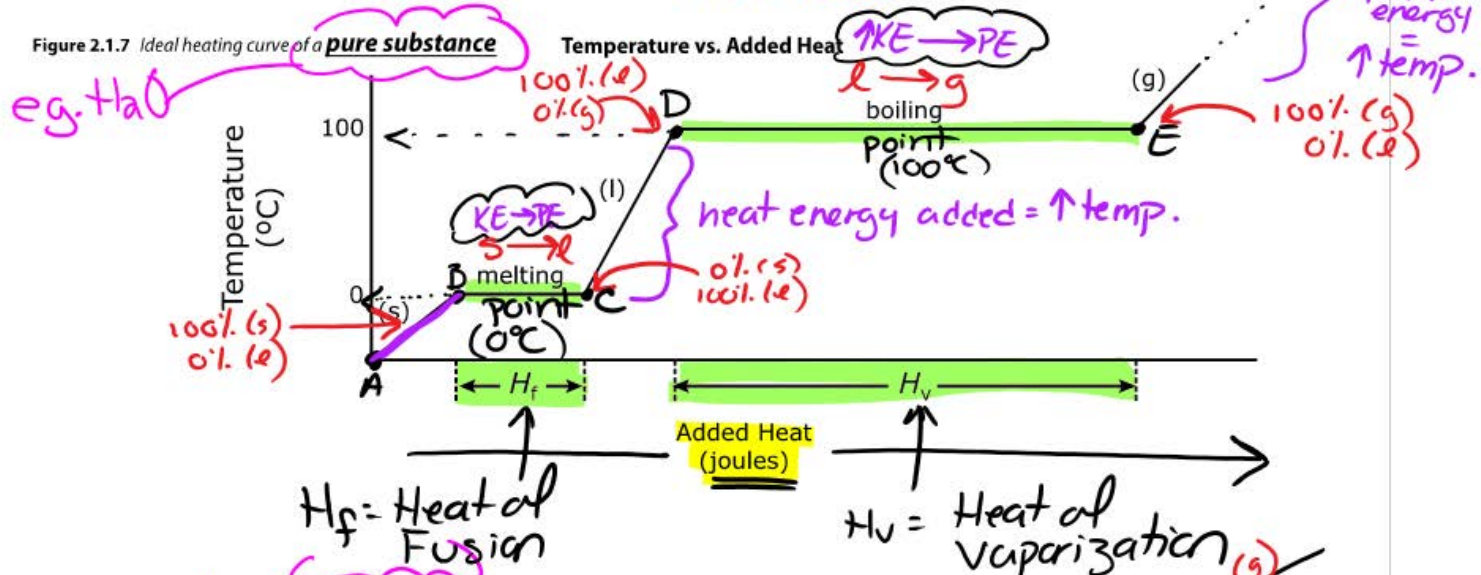 energy
=
↑ temp.
Figure 2.1.7 Ideal heating curve of a pure substance
Temperature vs. Added Heat
↑KE → PE
l → g
eg. H2O
100% (l)
0% (g)
D
(g)
boiling
point
(100°C)
E
100% (g)
0% (l)
100
Temperature
(°C)
(l)
KE→PE
s → l
heat energy added = ↑ temp.
B
melting
point
(0°C)
C
0% (s)
100% (l)
0
(s)
100% (s)
0% (l)
A
Hf
Hv
Added Heat
(joules)
Hf = Heat of
Fusion
Hv = Heat of
Vaporization
(g)